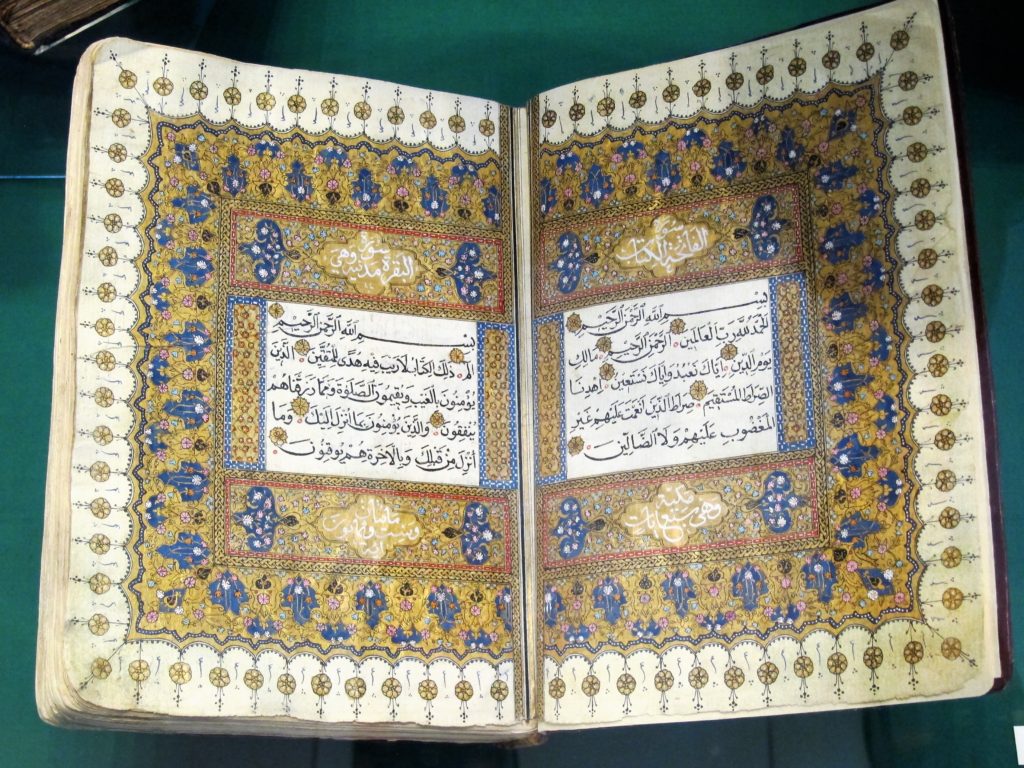 سورة
الفاتحة الكتاب
بسم الله الرحمن الرحيم
الحمد لله رب العالمين الرحمن الرحيم مالك
يوم الدين اياك نعبد واياك نستعين اهدنا
الصراط المستقيم صراط الذين انعمت عليهم غير
المغضوب عليهم ولا الضالين
مكية
وهي سبع ايات
سورة
البقرة مدنية وهي
بسم الله الرحمن الرحيم
الم ذلك الكتاب لا ريب فيه هدى للمتقين الذين
يؤمنون بالغيب ويقيمون الصلوة ومما رزقناهم
ينفقون والذين يؤمنون بما انزل اليك وما
انزل من قبلك وبالاخرة هم يوقنون
مائتان
وست وثمانون
اية